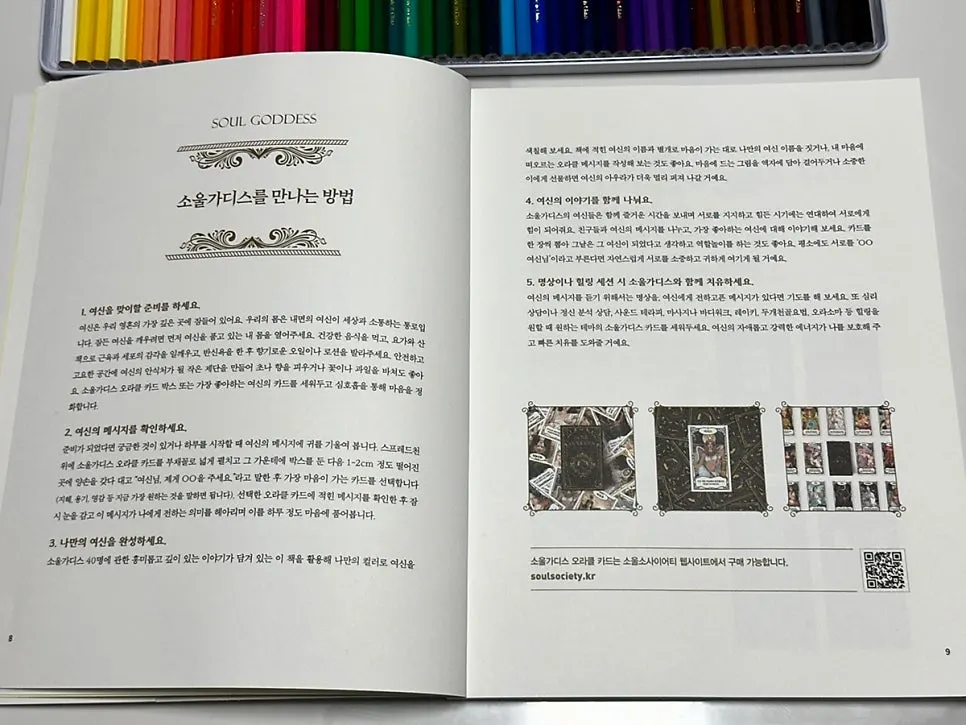 SOUL GODDESS
소울가디스를 만나는 방법
1. 여신을 맞이할 준비를 하세요.
여신은 우리 영혼의 가장 깊은 곳에 잠들어 있어요. 우리의 몸은 내면의 여신이 세상과 소통하는 통로입
니다. 잠든 여신을 깨우려면 먼저 여신을 품고 있는 내 몸을 열어주세요. 건강한 음식을 먹고, 요가와 산
책으로 근육과 세포의 감각을 일깨우고, 반신욕을 한 후 향기로운 오일이나 로션을 발라주세요. 안전하고
고요한 공간에 여신의 안식처가 될 작은 제단을 만들어 초나 향을 피우거나 꽃이나 과일을 바쳐도 좋아
요. 소울가디스 오라클 카드 박스 또는 가장 좋아하는 여신의 카드를 세워두고 심호흡을 통해 마음을 정
화합니다.
2. 여신의 메시지를 확인하세요.
준비가 되었다면 궁금한 것이 있거나 하루를 시작할 때 여신의 메시지에 귀를 기울여 봅니다. 스프레드천
위에 소울가디스 오라클 카드를 부채꼴로 넓게 펼치고 그 가운데에 박스를 둔 다음 1-2cm 정도 떨어진
곳에 양손을 갖다 대고 “여신님, 제게 OO을 주세요.”라고 말한 후 가장 마음이 가는 카드를 선택합니다
(지혜, 용기, 영감 등 지금 가장 원하는 것을 말하면 됩니다). 선택한 오라클 카드에 적힌 메시지를 확인한 후 잠
시 눈을 감고 이 메시지가 나에게 전하는 의미를 헤아리며 이를 하루 정도 마음에 품어봅니다.
3. 나만의 여신을 완성하세요.
소울가디스 40명에 관한 흥미롭고 깊이 있는 이야기가 담겨 있는 이 책을 활용해 나만의 컬러로 여신을
8
색칠해 보세요. 책에 적힌 여신의 이름과 별개로 마음이 가는 대로 나만의 여신 이름을 짓거나, 내 마음에
떠오르는 오라클 메시지를 작성해 보는 것도 좋아요. 마음에 드는 그림을 액자에 담아 걸어두거나 소중한
이에게 선물하면 여신의 아우라가 더욱 멀리 퍼져 나갈 거예요.
4. 여신의 이야기를 함께 나눠요.
소울가디스의 여신들은 함께 즐거운 시간을 보내며 서로를 지지하고 힘든 시기에는 연대하여 서로에게
힘이 되어줘요. 친구들과 여신의 메시지를 나누고, 가장 좋아하는 여신에 대해 이야기해 보세요. 카드를
한 장씩 뽑아 그날은 그 여신이 되었다고 생각하고 역할놀이를 하는 것도 좋아요. 평소에도 서로를 ‘OO
여신님’이라고 부른다면 자연스럽게 서로를 소중하고 귀하게 여기게 될 거예요.
5. 명상이나 힐링 세션 시 소울가디스와 함께 치유하세요.
여신의 메시지를 듣기 위해서는 명상을, 여신에게 전하고픈 메시지가 있다면 기도를 해 보세요. 또 심리
상담이나 정신 분석 상담, 사운드 테라피, 마사지나 바디워크, 레이키, 두개천골요법, 오라소마 등 힐링을
원할 때 원하는 테마의 소울가디스 카드를 세워두세요. 여신의 자애롭고 강력한 에너지가 나를 보호해 주
고 빠른 치유를 도와줄 거예요.
소울가디스 오라클 카드는 소울소사이어티 웹사이트에서 구매 가능합니다.
soulsociety.kr
9